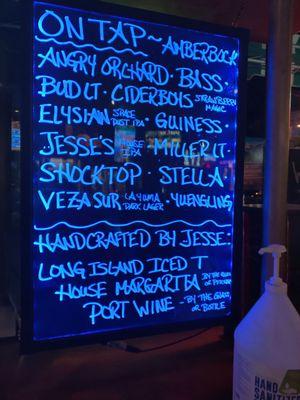 ON TAP ~ AMBERBOCK
ANGRY ORCHARD · BASS ·
BUD LT · CIDERBOYS STRAWBERRY MAGIC
ELYSIAN SPACE DUST IPA · GUINESS ·
JESSE'S HOUSE IPA · MILLER LT ·
SHOCKTOP · STELLA
VEZA SUR LAYUMA DARK LAGER · YUENGLING
HANDCRAFTED BY JESSE:
LONG ISLAND ICED T
HOUSE MARGARITA BY THE GLASS OR PITCHER
PORT WINE - BY THE GLASS, OR BOTTLE
HAND
SANITIZER